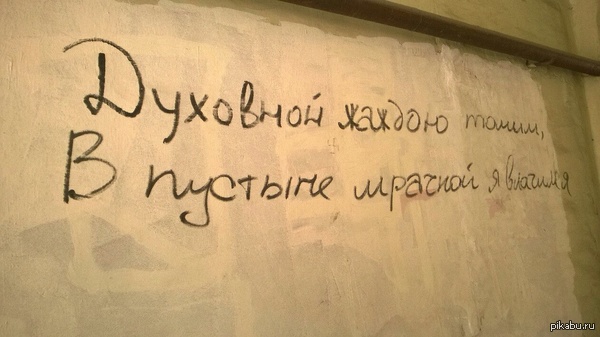 Духовной жаждою томим,
В пустыне мрачной я влачился
pikabu.ru